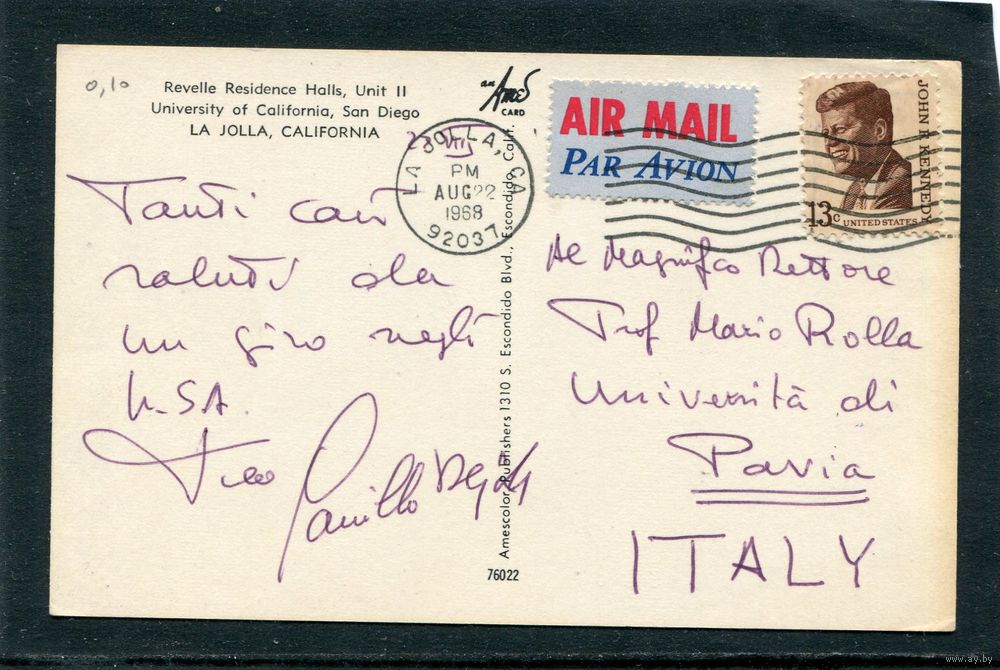 0,10
Revelle Residence Halls, Unit II
University of California, San Diego
LA JOLLA, CALIFORNIA
an Ames
CARD
AIR MAIL
PAR AVION
JOHN F. KENNEDY
13c UNITED STATES
LA JOLLA, CA
PM
AUG 22
1968
92037
Tanti cari
saluti da
un giro negli
USA.
Camillo
Amescolor Publishers 1310 S. Escondido Blvd., Escondido, Calif.
76022
Al Magnifico Rettore
Prof Mario Rolla
Università di
Pavia
ITALY
www.ay.by